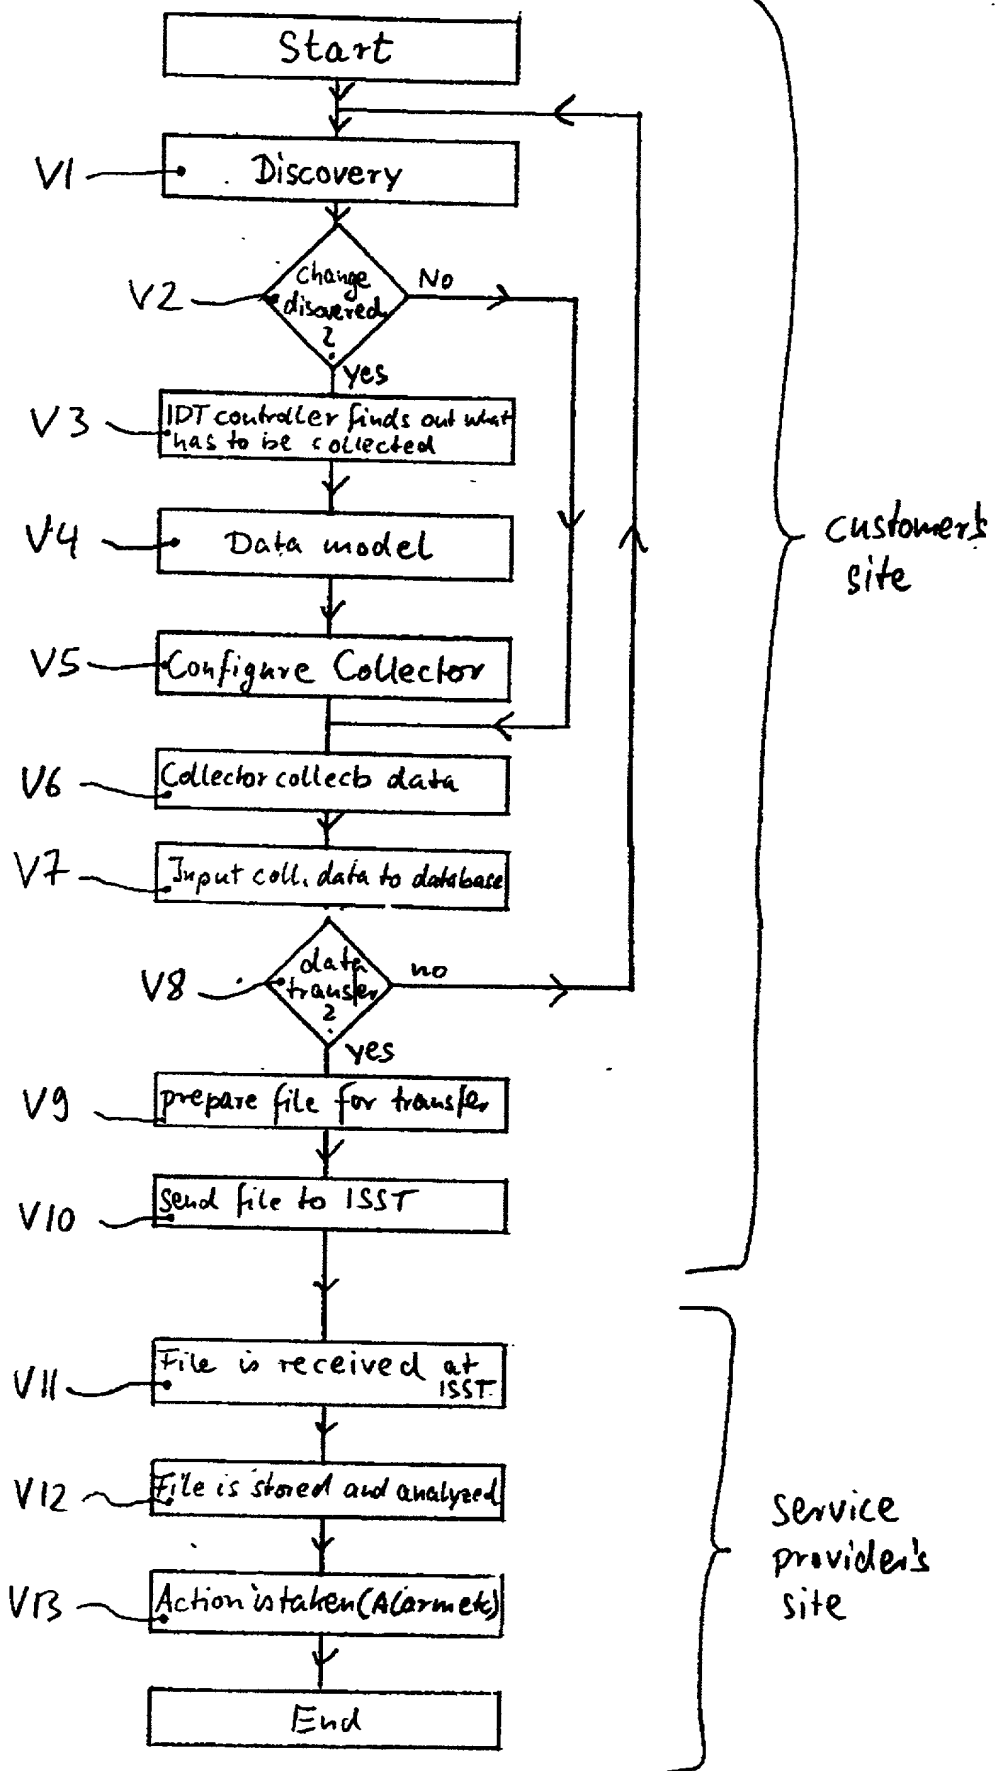 Start
V1
Discovery
V2
change
disovered
?
No
yes
V3
IDT controller finds out what
has to be collected
V4
Data model
V5
Configure Collector
customer's
site
V6
Collector collects data
V7
Input coll. data to database
V8
data
transfer
?
no
yes
V9
prepare file for transfer
V10
send file to ISST
V11
File is received at
ISST.
V12
File is stored and analyzed
V13
Action is taken (Alarm etc)
service
provider's
site
End